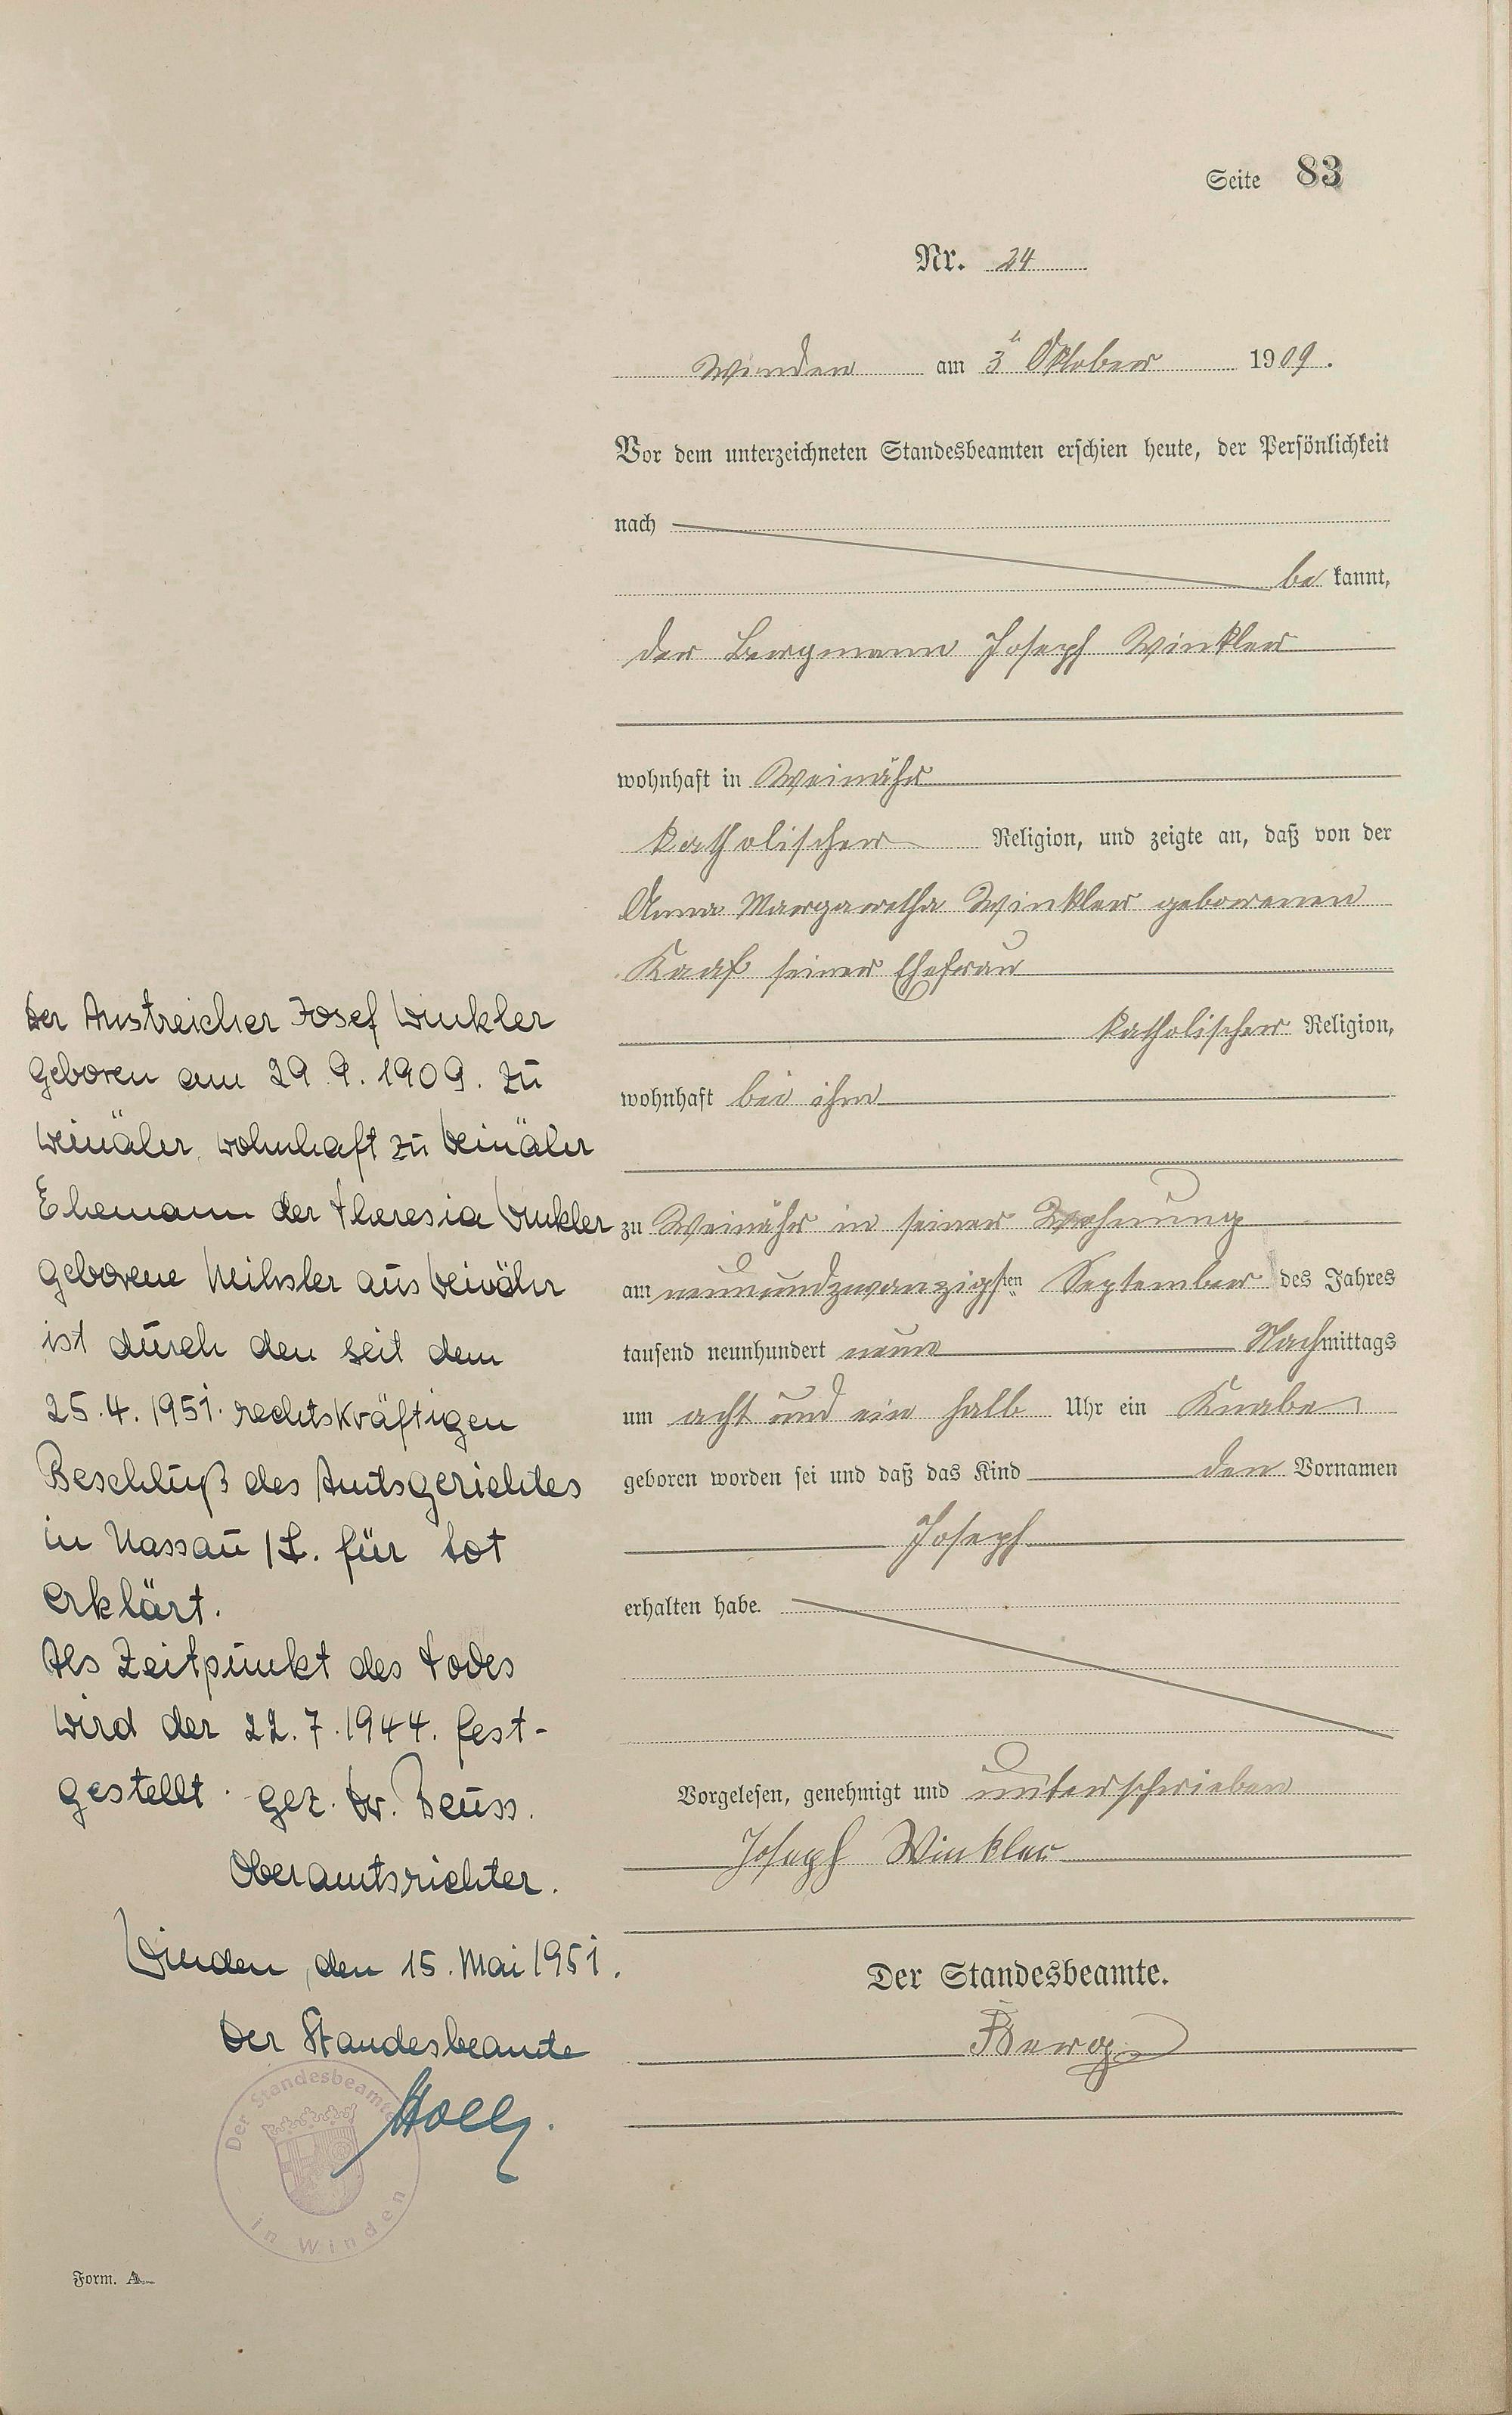 Seite 83
Nr. 24
Winden am 3ᵗ Oktober 1909.
Vor dem unterzeichneten Standesbeamten erschien heute, der Persönlichkeit
nach
be kannt,
der Bergmann Joseph Winkler
wohnhaft in Weinähr
katholischer Religion, und zeigte an, daß von der
Anna Margaretha Winkler geborenen
Kaaf seiner Ehefrau
katholischer Religion,
wohnhaft bei ihm
zu Weinähr in seiner Wohnung
am neunundzwanzigsten September des Jahres
tausend neunhundert neun Nachmittags
um acht und ein halb Uhr ein Knabe
geboren worden sei und daß das Kind den Vornamen
Joseph
erhalten habe.
Vorgelesen, genehmigt und unterschrieben
Joseph Winkler
Der Standesbeamte.
Berg
Der Anstreicher Josef Winkler
geboren am 29.9.1909. zu
Weinähr, wohnhaft zu Weinähr
Ehemann der Theresia Winkler
geborene aus Weinähr
ist durch den seit dem
25.4.1951. rechtskräftigen
Beschluß des Amtsgerichtes
in Nassau/L. für tot
erklärt.
Als Zeitpunkt des Todes
wird der 22.7.1944. fest-
gestellt. gez. Dr. Beuss.
Oberamtsrichter.
Winden, den 15. Mai 1951.
Der Standesbeamte
Der Standesbeamte
in Winden
Form. A.